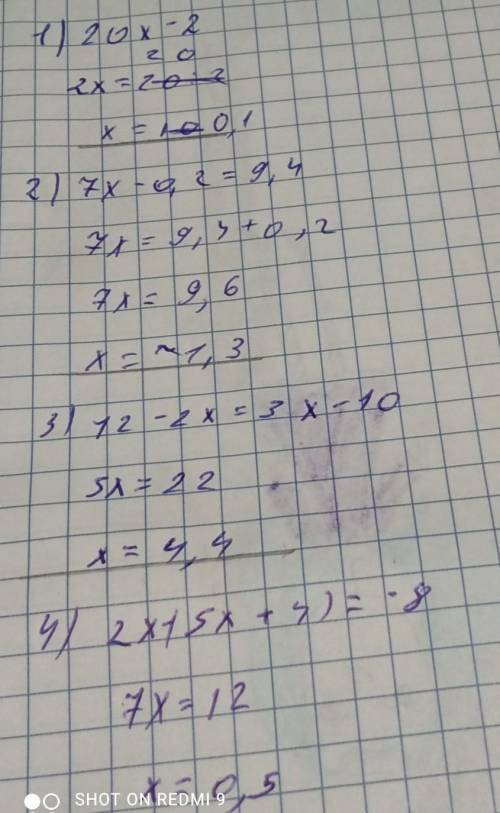 1) 20x - 2
20
2x = 20 - 2
x = 10 0,1
2) 7x - 0,2 = 9,4
7x = 9,4 + 0,2
7x = 9,6
x = ~1,3
3) 12 - 2x = 3x - 10
5x = 22
x = 4,4
4) 2x + (5x + 4) = -8
7x = 12
x = 0,5
SHOT ON REDMI 9